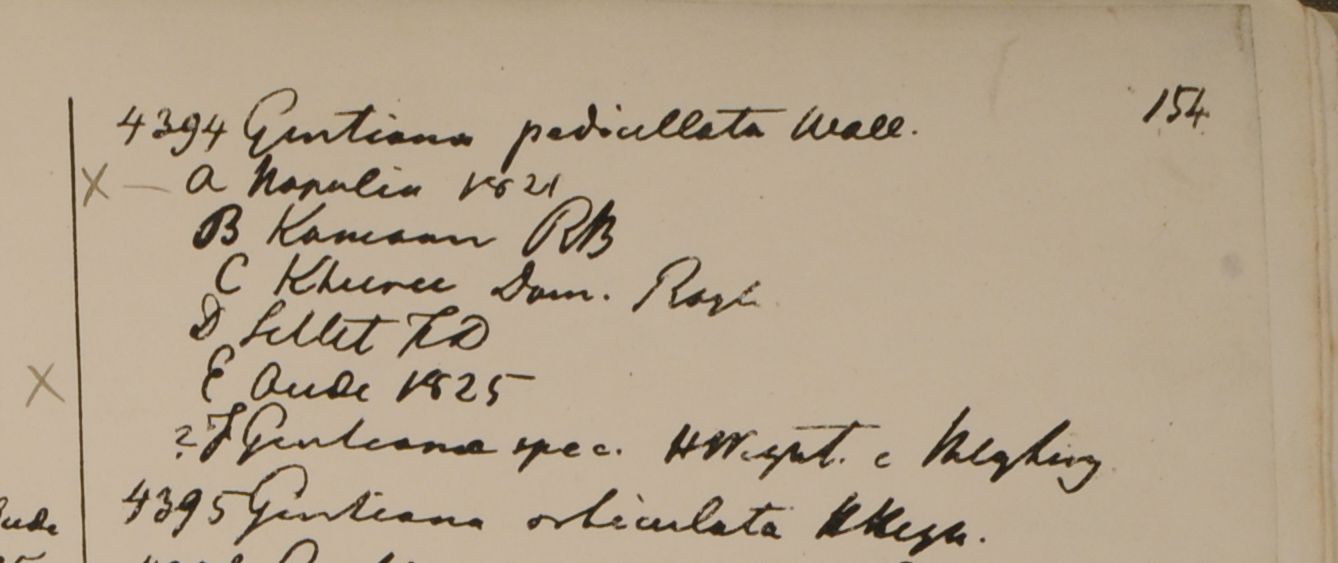 154
4394 Gentiana pedicellata Wall.
X — a Napalia 1821
B Kamaon RB
C Kheree Dom. Royle
D Sillet FD
X E Oude 1825
? F Gentiana spec. HW
4395 Gentiana orbiculata
Oude